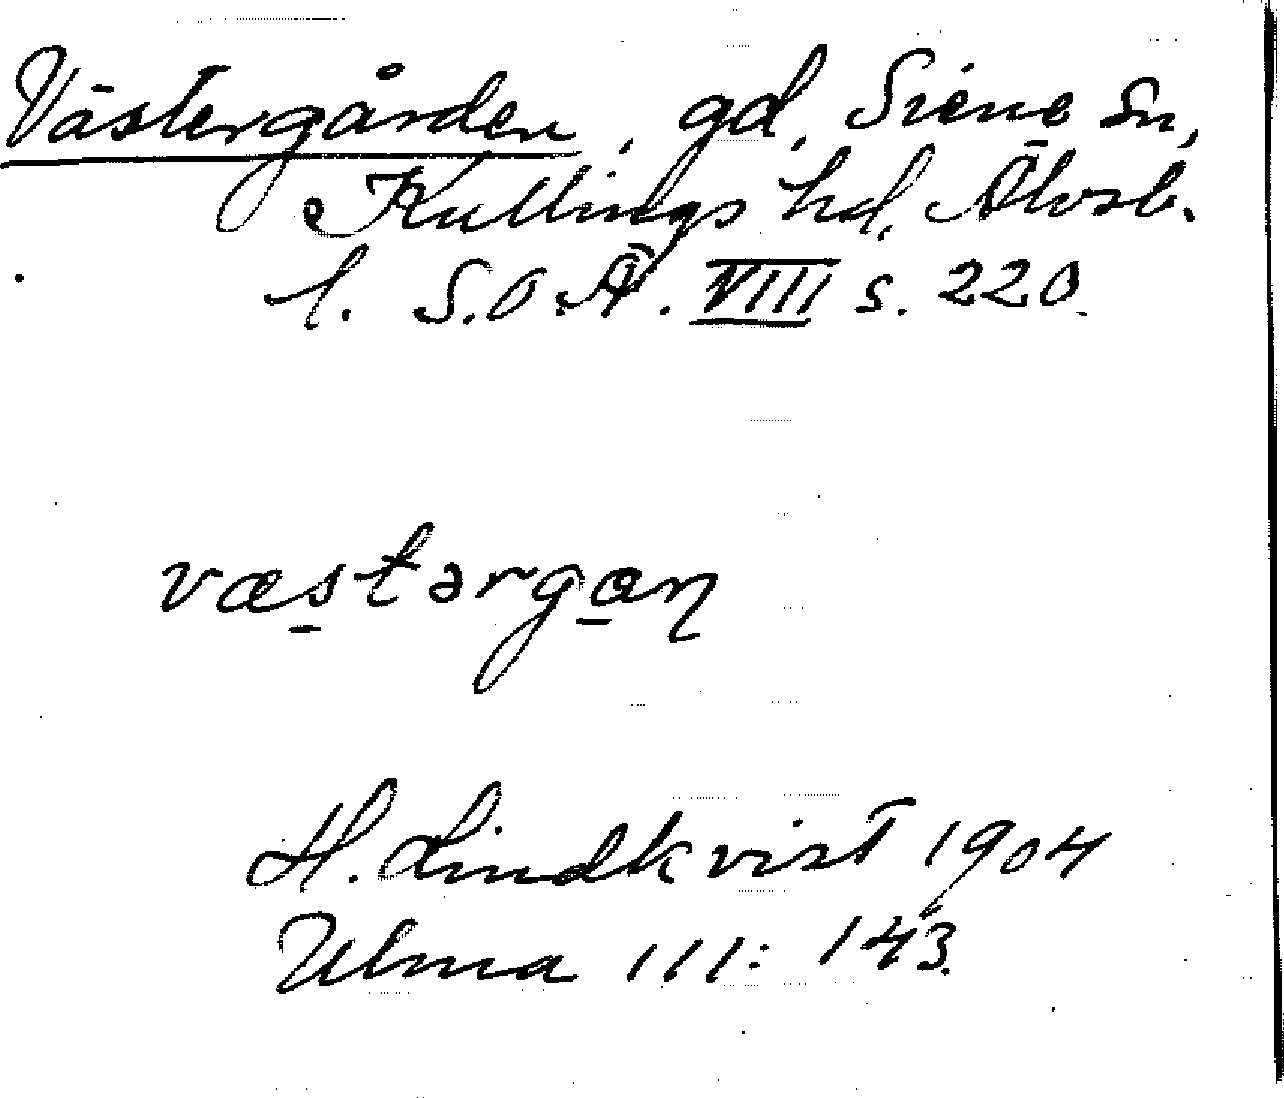 Västergården, gd, Siene sn,
Kullings hd, Älvsb.
l. S.O.Ä. VIII s. 220.
væstərgan
H. Lindkvist 1904
Ulma 111: 143.